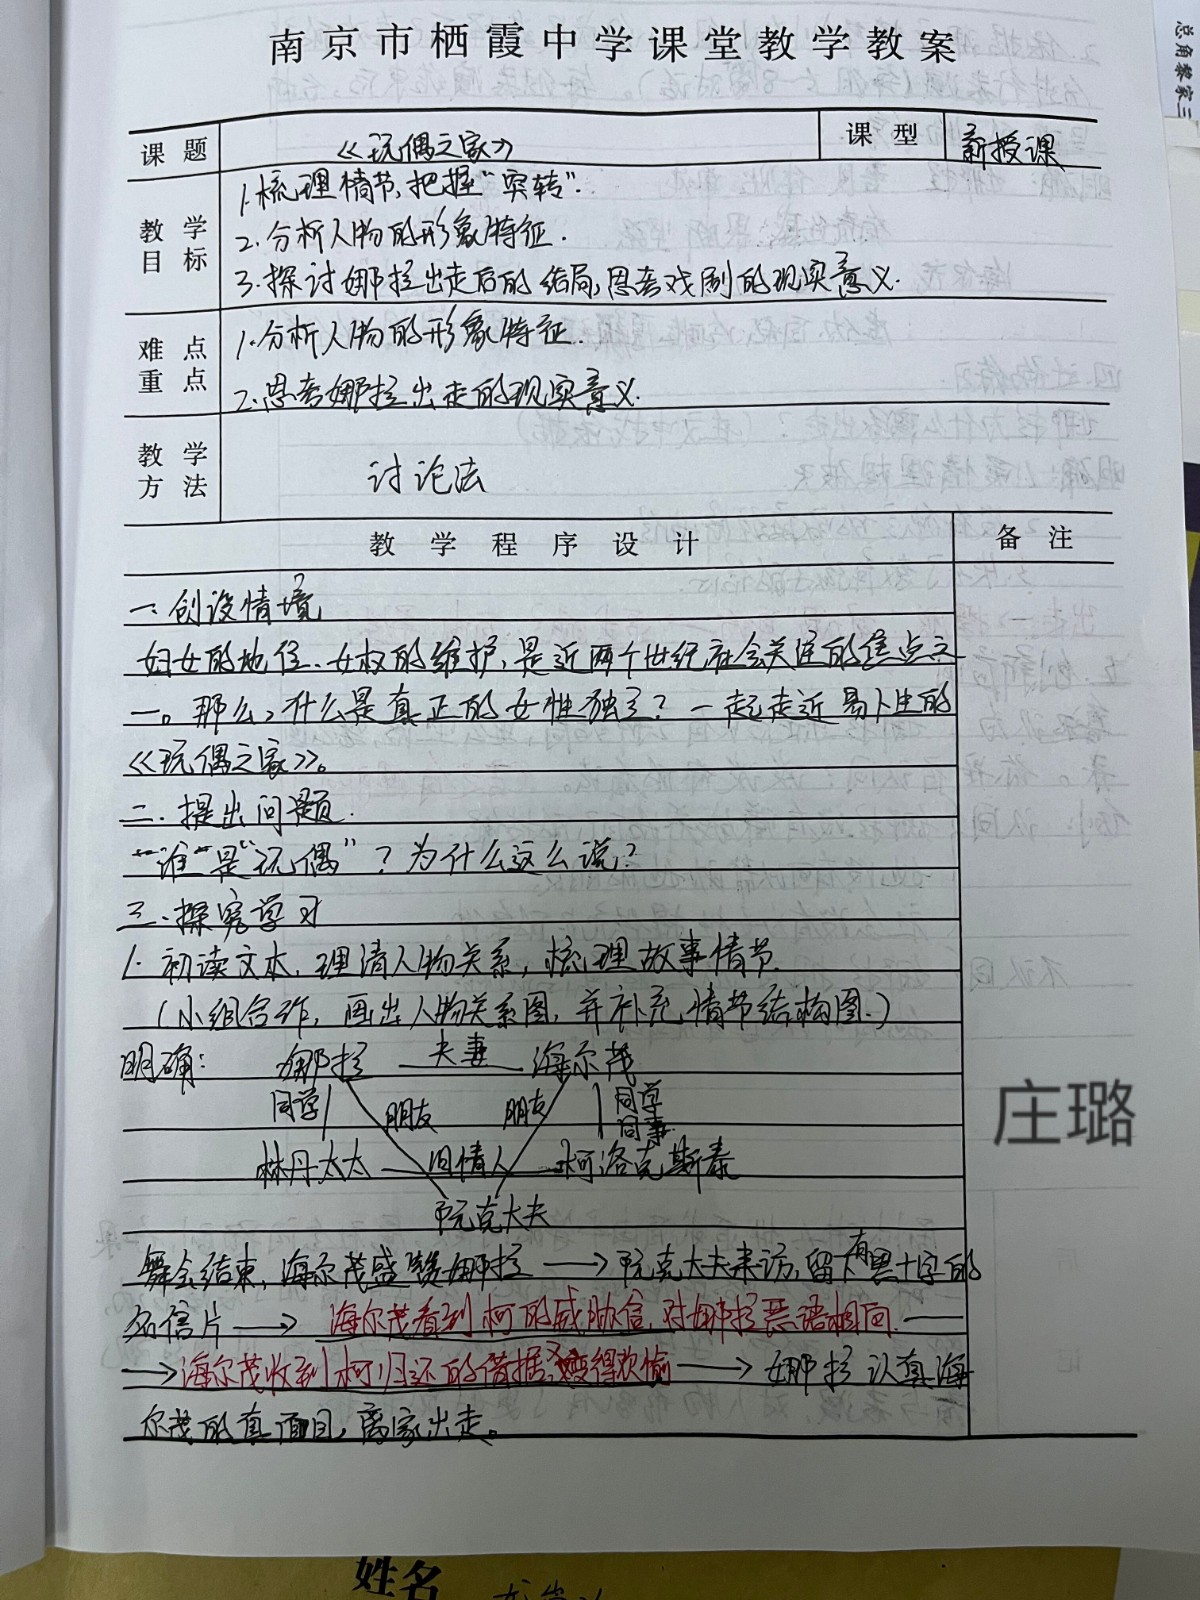 南京市栖霞中学课堂教学教案
总角黎家三
课题 《玩偶之家》 课型 新授课
教学目标
1.梳理情节,把握“突转”.
2.分析人物的形象特征.
3.探讨娜拉出走后的结局,思考戏剧的现实意义.
难点重点
1.分析人物的形象特征.
2.思考娜拉出走的现实意义.
教学方法 讨论法
教学程序设计 备注
一.创设情境
妇女的地位、女权的维护,是近两个世纪社会关注的焦点之
一。那么,什么是真正的女性独立?一起走近易卜生的
《玩偶之家》。
二.提出问题.
“谁”是“玩偶”?为什么这么说?
三.探究学习
1.初读文本,理清人物关系,梳理故事情节.
(小组合作,画出人物关系图,并补充情节结构图.)
明确: 娜拉 夫妻 海尔茂
同学 朋友 朋友 同学 同事
林丹太太 旧情人 柯洛克斯泰
阮克大夫
庄璐
舞会结束,海尔茂盛赞娜拉→阮克大夫来访,留下有黑十字的
名信片→海尔茂看到柯的威胁信,对娜拉恶语相向.—
→海尔茂收到柯归还的借据,变得欢愉→娜拉认真海
尔茂的真面目,离家出走。
姓名